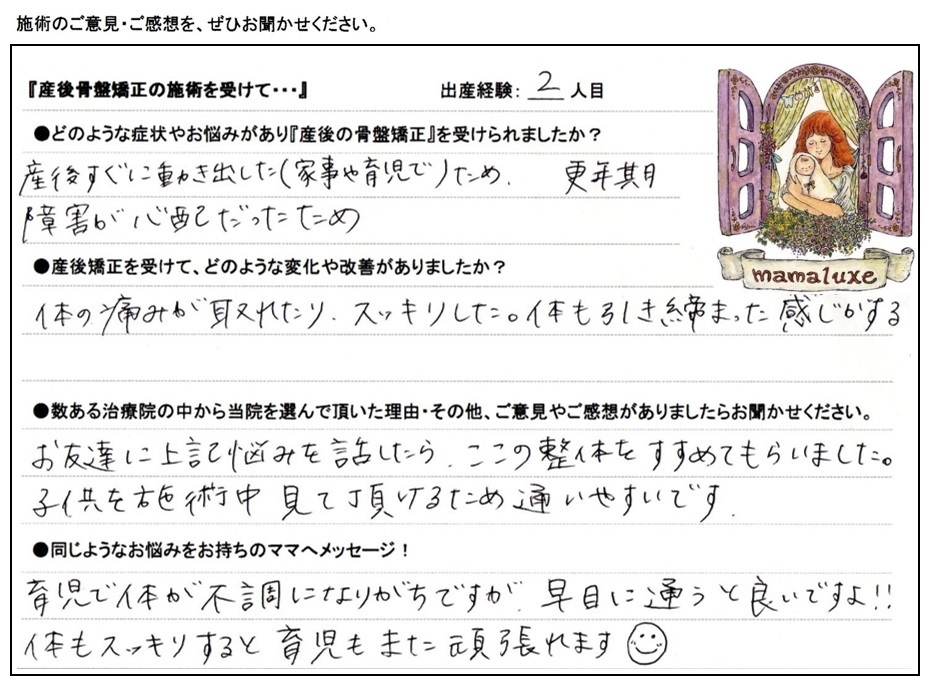 施術のご意見・ご感想を、ぜひお聞かせください。
『産後骨盤矯正の施術を受けて・・・』 出産経験： 2 人目
●どのような症状やお悩みがあり『産後の骨盤矯正』を受けられましたか？
産後すぐに動き出した(家事や育児で)ため、 更年期
障害が心配だったため
●産後矯正を受けて、どのような変化や改善がありましたか？
mamaluxe
体の痛みが取れたり、スッキリした。体も引き締まった感じがする
●数ある治療院の中から当院を選んで頂いた理由・その他、ご意見やご感想がありましたらお聞かせください。
お友達に上記悩みを話したら、ここの整体をすすめてもらいました。
子供を施術中見て頂けるため通いやすいです．
●同じようなお悩みをお持ちのママへメッセージ！
育児で体が不調になりがちですが、早目に通うと良いですよ!!
体もスッキリすると育児もまた頑張れます☺